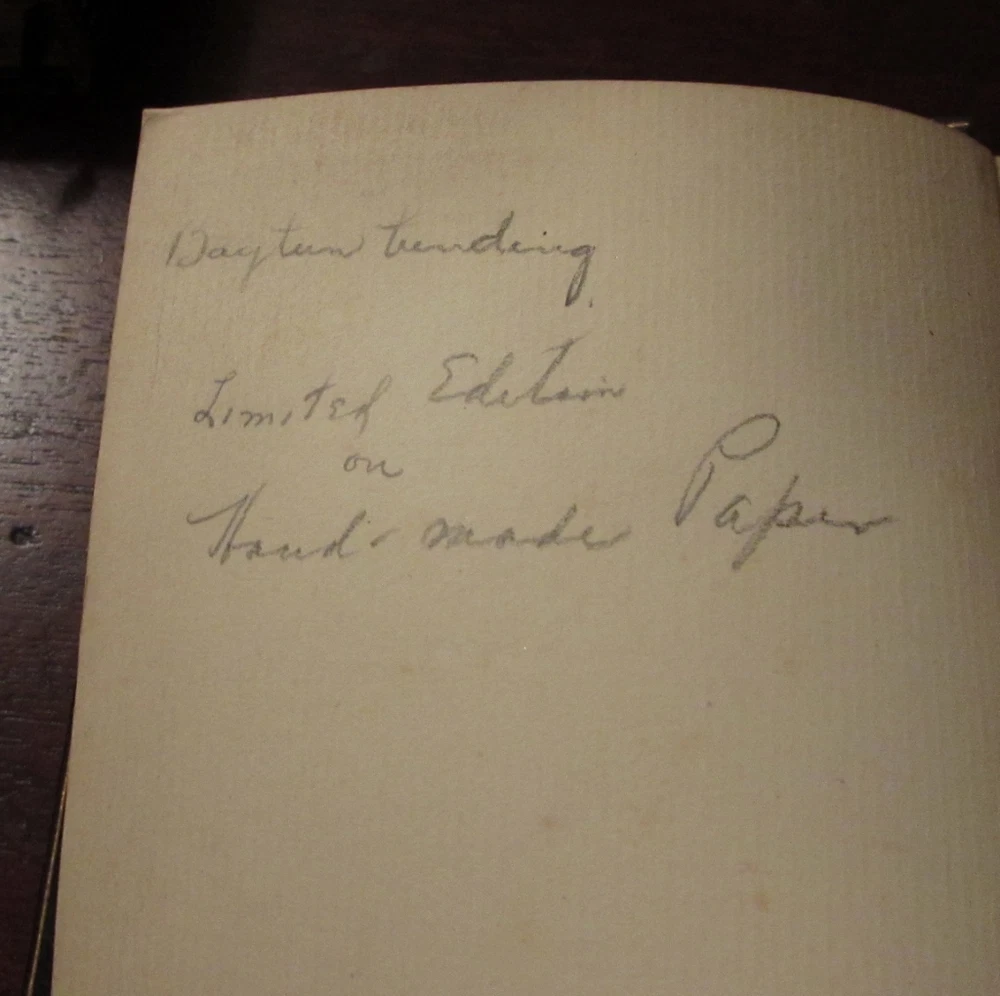 Daytun binding
Limited Edition
on
Hand-made Paper